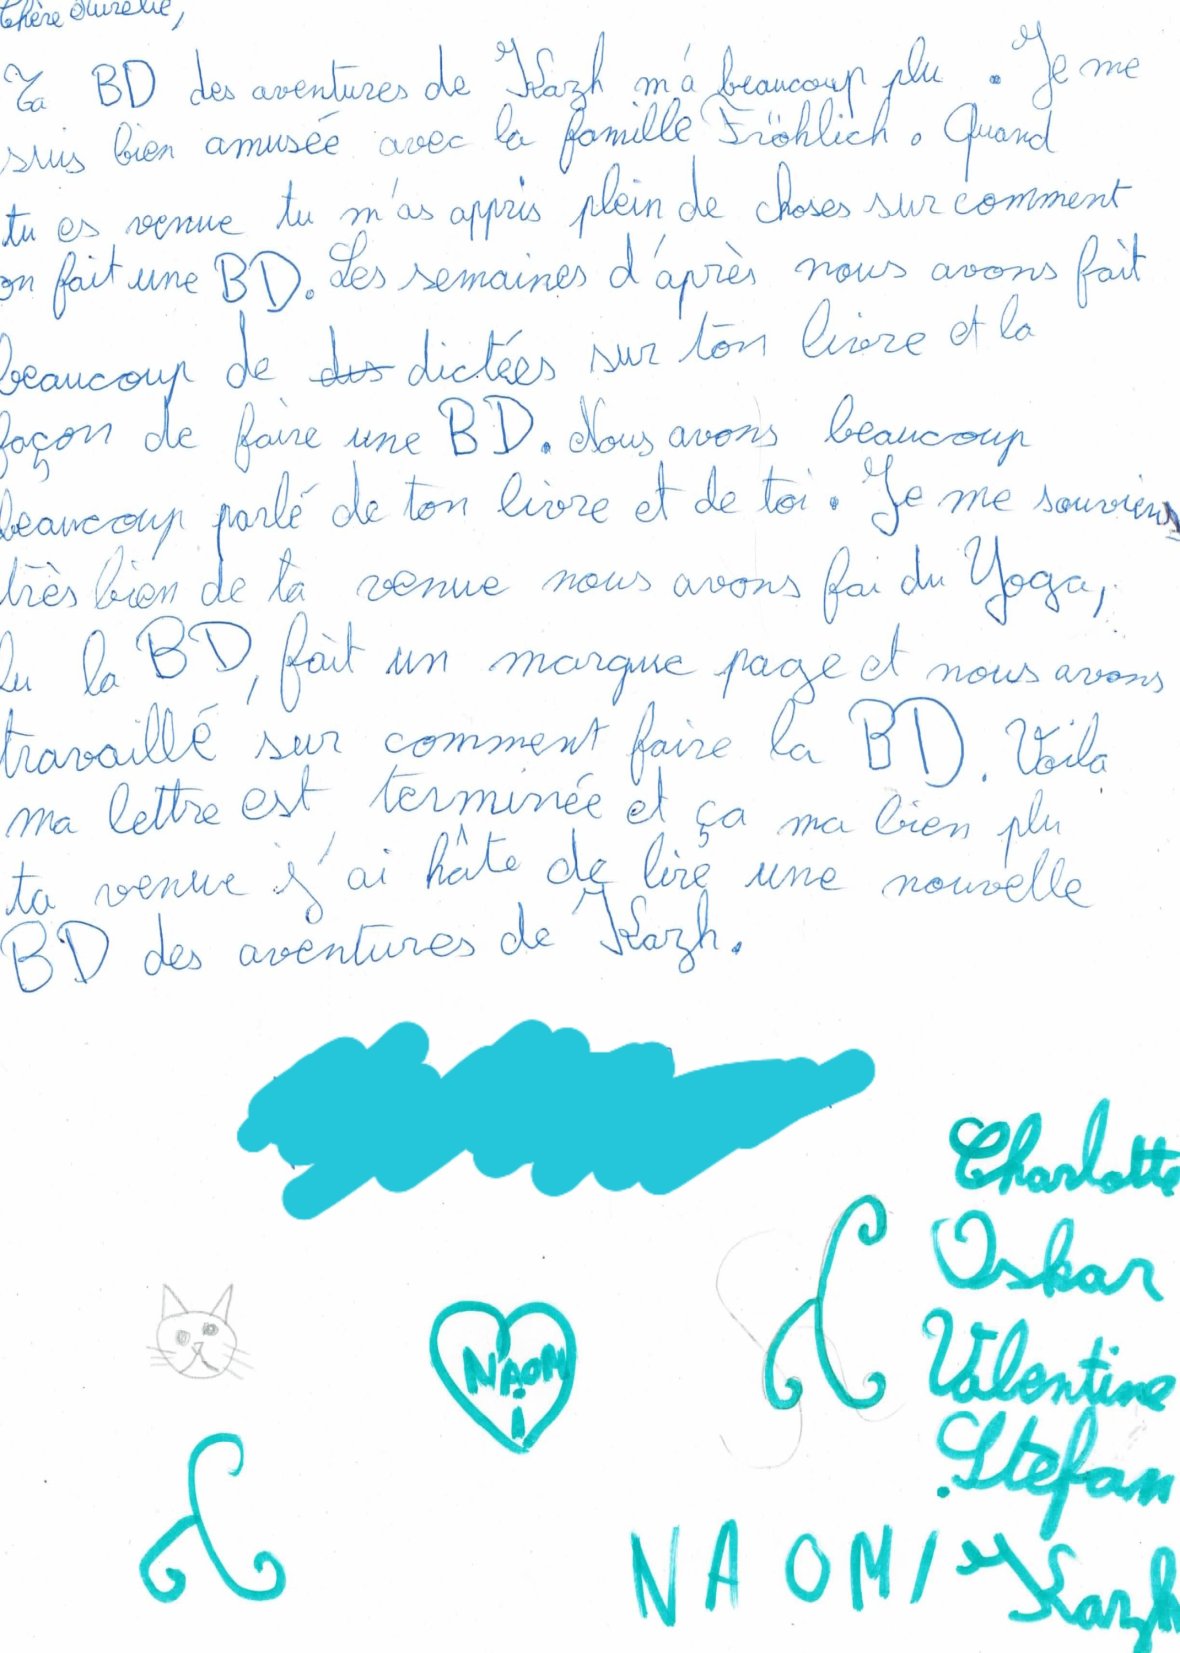 Chère Aurélie,
Ta BD des aventures de Kazh m'a beaucoup plu. Je me
suis bien amusée avec la famille Fröhlich. Quand
tu es venue tu m'as appris plein de choses sur comment
on fait une BD. Les semaines d'après nous avons fait
beaucoup de des dictées sur ton livre et la
façon de faire une BD. Nous avons beaucoup
beaucoup parlé de ton livre et de toi. Je me souviens
très bien de ta venue nous avons fai du Yoga,
lu la BD, fait un marque page et nous avons
travaillé sur comment faire la BD. Voila
ma lettre est terminée et ça ma bien plu
ta venue j'ai hâte de lire une nouvelle
BD des aventures de Kazh.
Charlotte
Oskar
Valentine
Stefan
NAOMI
NAOMI Kazh